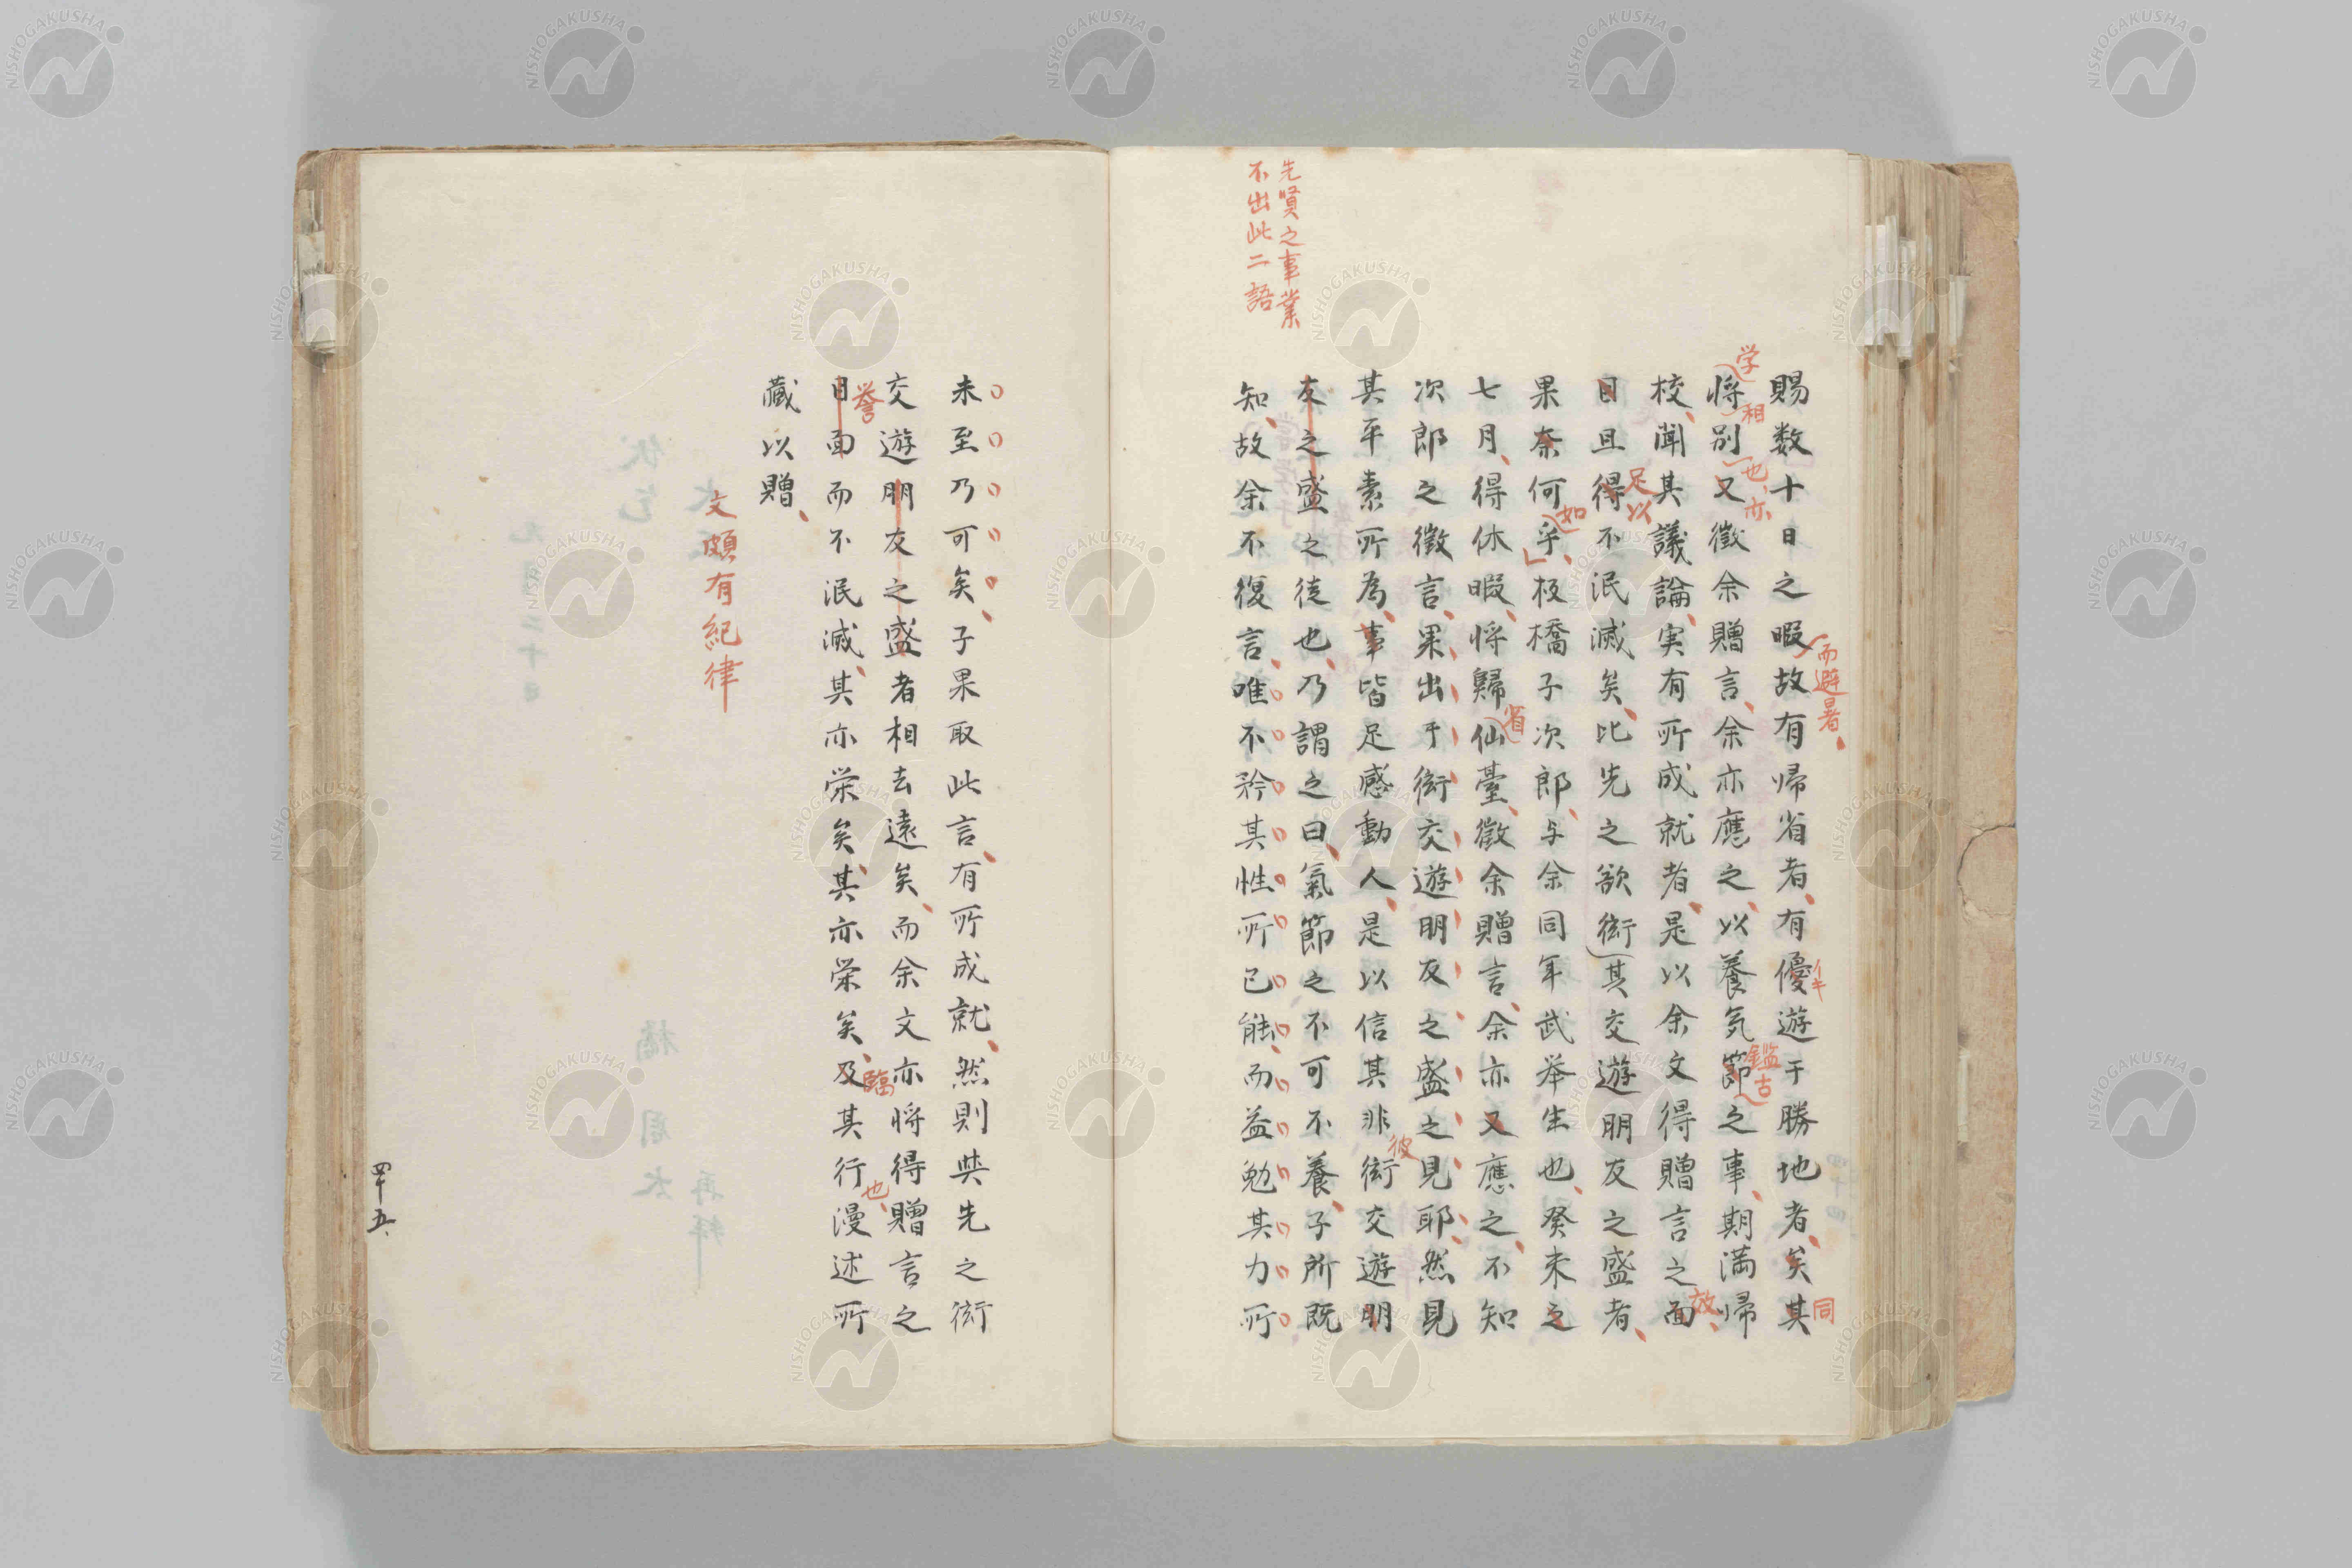 先賢之事業
不出此二語
賜数十日之暇故有帰省者有優遊于勝地者矣其
而避暑
同
将別又徵余贈言余亦應之以養気節之事期満帰
学
相
也亦
鑑古
校聞其議論実有所成就者是以余文得贈言之面
故
目且得不泯滅矣比先之欲衒其交遊朋友之盛者
足以
果奈何乎板橋子次郎与余同年武挙生也癸未之
如
七月得休暇将歸仙臺徵余贈言余亦又應之不知
省
次郎之徵言果出于衒交遊朋友之盛之見耶然見
其平素所為事皆足感動人是以信其非衒交遊朋
彼
友之盛之徒也乃謂之曰氣節之不可不養子所既
知故余不復言唯不矜其性所已能而益勉其力所
未至乃可矣子果取此言有所成就然則與先之衒
交遊朋友之盛者相去遠矣而余文亦将得贈言之
誉
目面而不泯滅其亦栄矣其亦栄矣及其行漫述所
臨
也
藏以贈
文頗有紀律
四十五
NISHOGAKUSHA